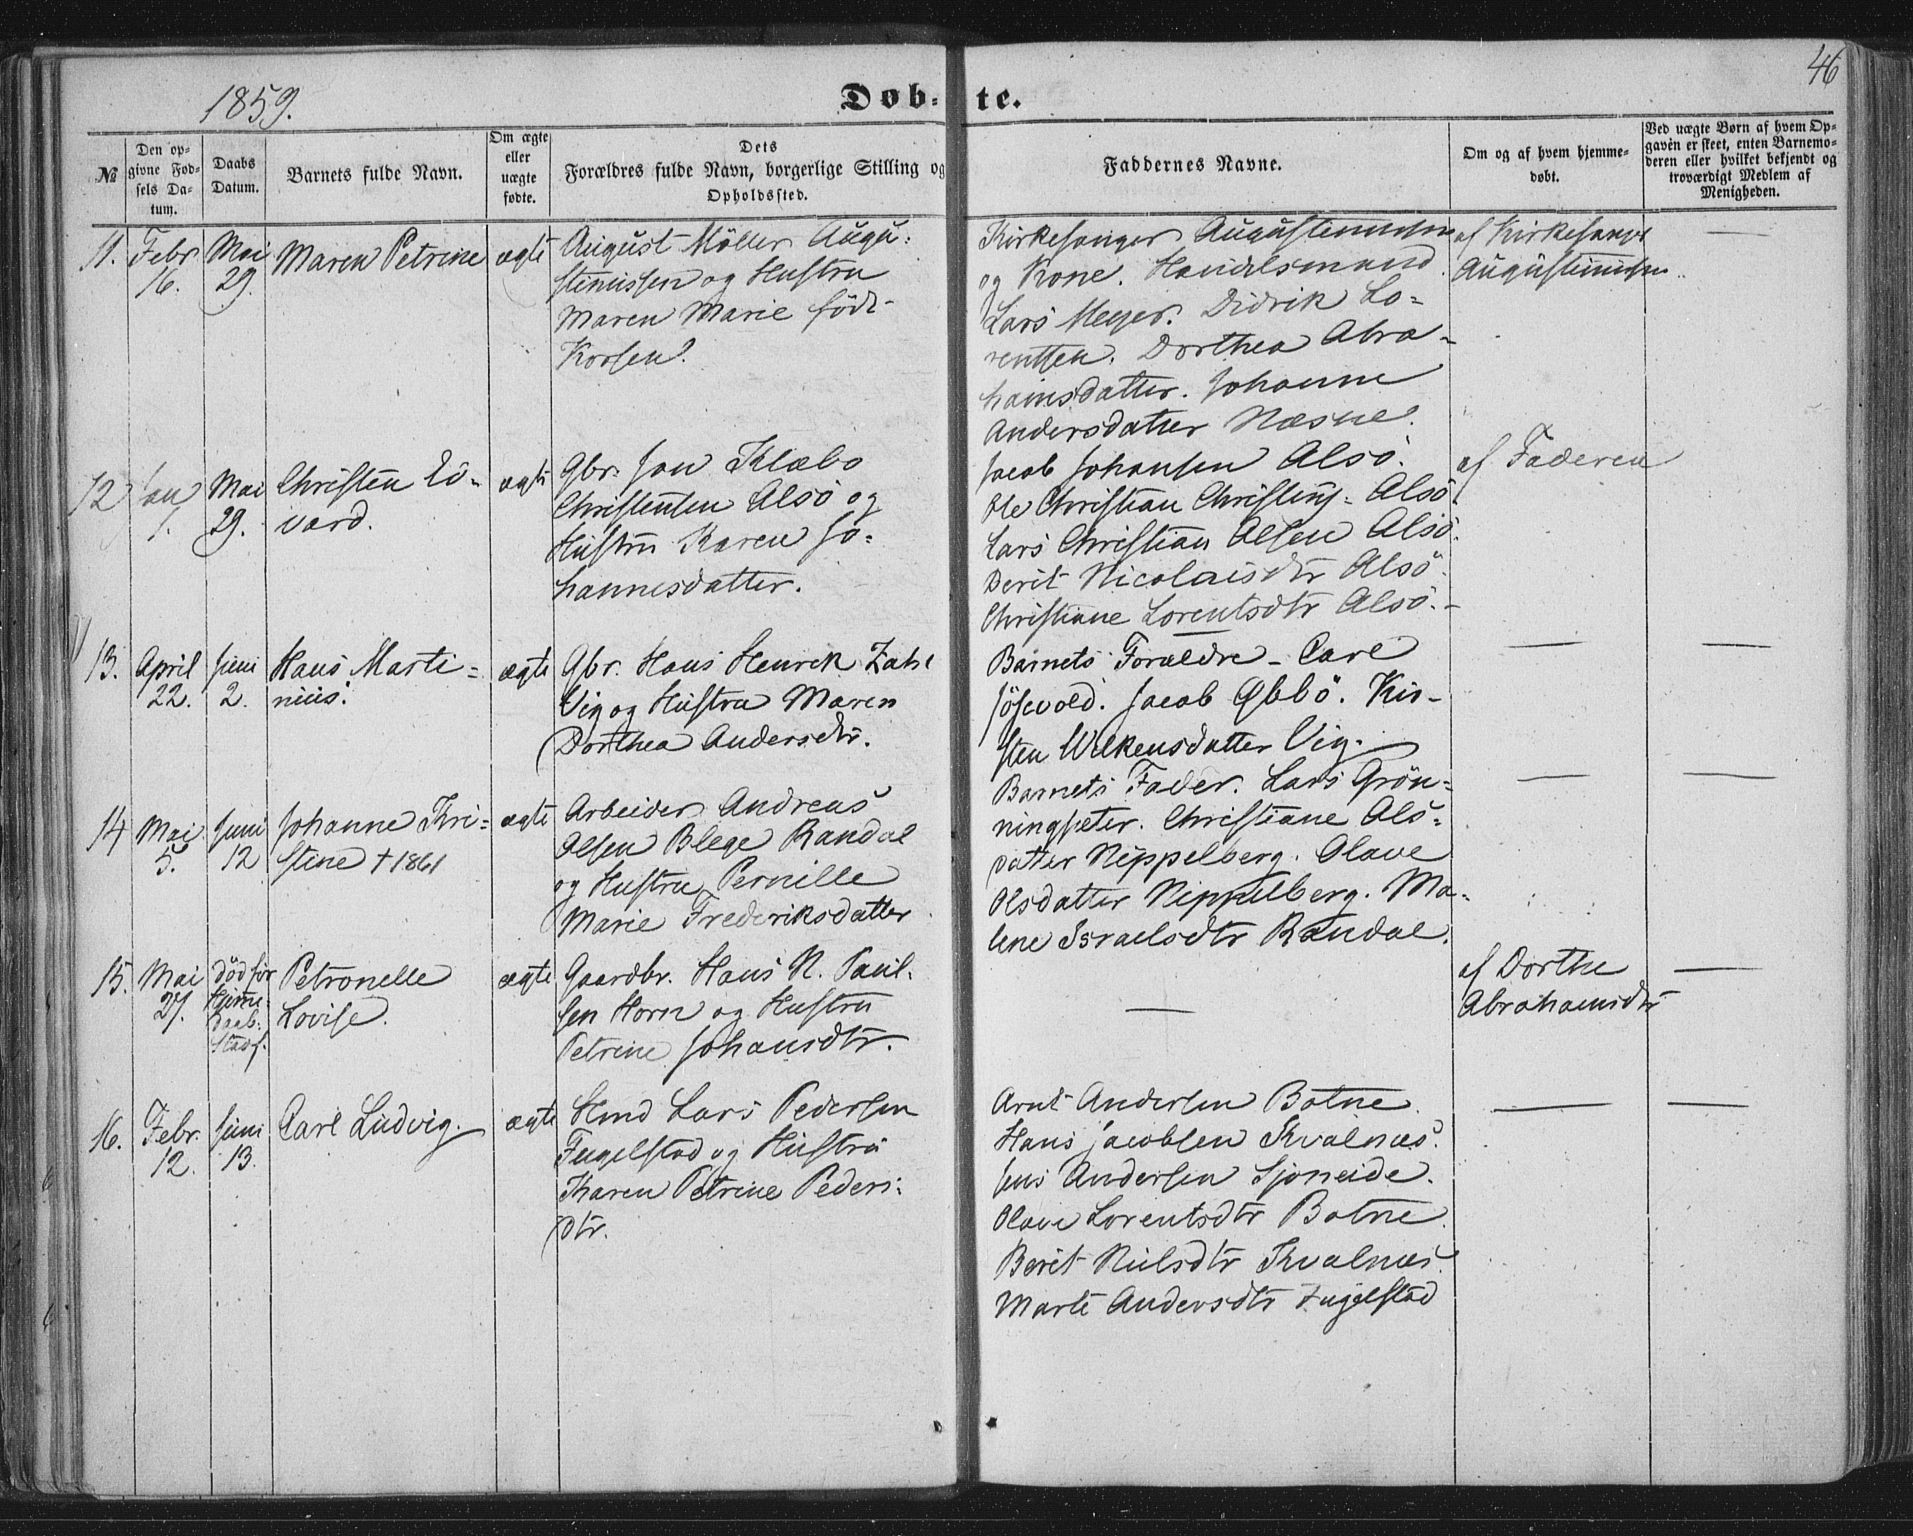 46
1859.
Døb-te.
№
Den op-
givne Fød-
sels Da-
tum.
Daabs
Datum.
Barnets fulde Navn.
Om ægte
eller
uægte
fødte.
Dets
Forældres fulde Navn, borgerlige Stilling og
Opholdssted.
Faddernes Navne.
Om og af hvem hjemme-
døbt.
Ved uægte Børn af hvem Op-
gaven er skeet, enten Barnemo-
deren eller hvilket bekjendt og
troværdigt Medlem af
Menigheden.
11.
Febr
16.
Mai
29.
Maren Petrine
ægte
August Möller Augu-
stinussen og Hustru
Maren Marie født
Korsen.
Kirkesanger Augustinussen
og Kone. Handelsmand
Lars Meyer. Didrik Lo-
rentsen. Dorthea Abra-
hamsdatter. Johanne
Andersdatter Næsne.
af Kirkesanger
Augustinussen
—
12
Jan
1.
Mai
29.
Christen Ed-
vard.
ægte
Gbr. Jon Klæbo
Christensen Alsö og
Hustru Karen Jo-
hannesdatter.
Jacob Johansen Alsö.
Ole Christian Christens. Alsö
Lars Christian Olsen Alsö.
Berit Nicolaisdtr Alsö.
Christiane Lorentsdtr Alsö.
af Faderen
13.
April
22.
Juni
2.
Hans Marti-
nius.
ægte
Gbr. Hans Henrik Zahl
Vig og Hustru Maren
Dorthea Andersdtr.
Barnets Forældre - Carl
Jösevold. Jacob Øbbö. Kir-
sten Wilkensdatter Vig.
—
—
14
Mai
5.
Juni
12
Johanne Kri-
stine † 1861
ægte
Arbeider Andreas
Olsen Blege Randal
og Hustru Pernille
Marie Frederiksdatter
Barnets Fader. Lars Grön-
ningsæter. Christiane Als-
datter Nippelberg. Olave
Olsdatter Nippelberg. Ma-
lene Israelsdtr Randal.
—
—
15.
Mai
27.
död för
Hjemme-
daab.
Stadf.
Petronelle
Lovise.
ægte
Gaardbr. Hans N. Paul-
sen Horn og Hustru
Petrine Johansdtr.
—
af Dorthe
Abrahamsdtr
—
16.
Febr.
12.
Juni
13.
Carl Ludvig.
ægte
Hmd Lars Pedersen
Fugelstad og Hustru
Karen Petrine Peders-
dtr.
Arnt Andersen Botne.
Hans Jacobsen Kvalnæs.
Jens Andersen Sjoneide.
Olave Lorentsdtr Botne.
Berit Nielsdtr Kvalnæs.
Marte Andersdtr Fugelstad
—
—